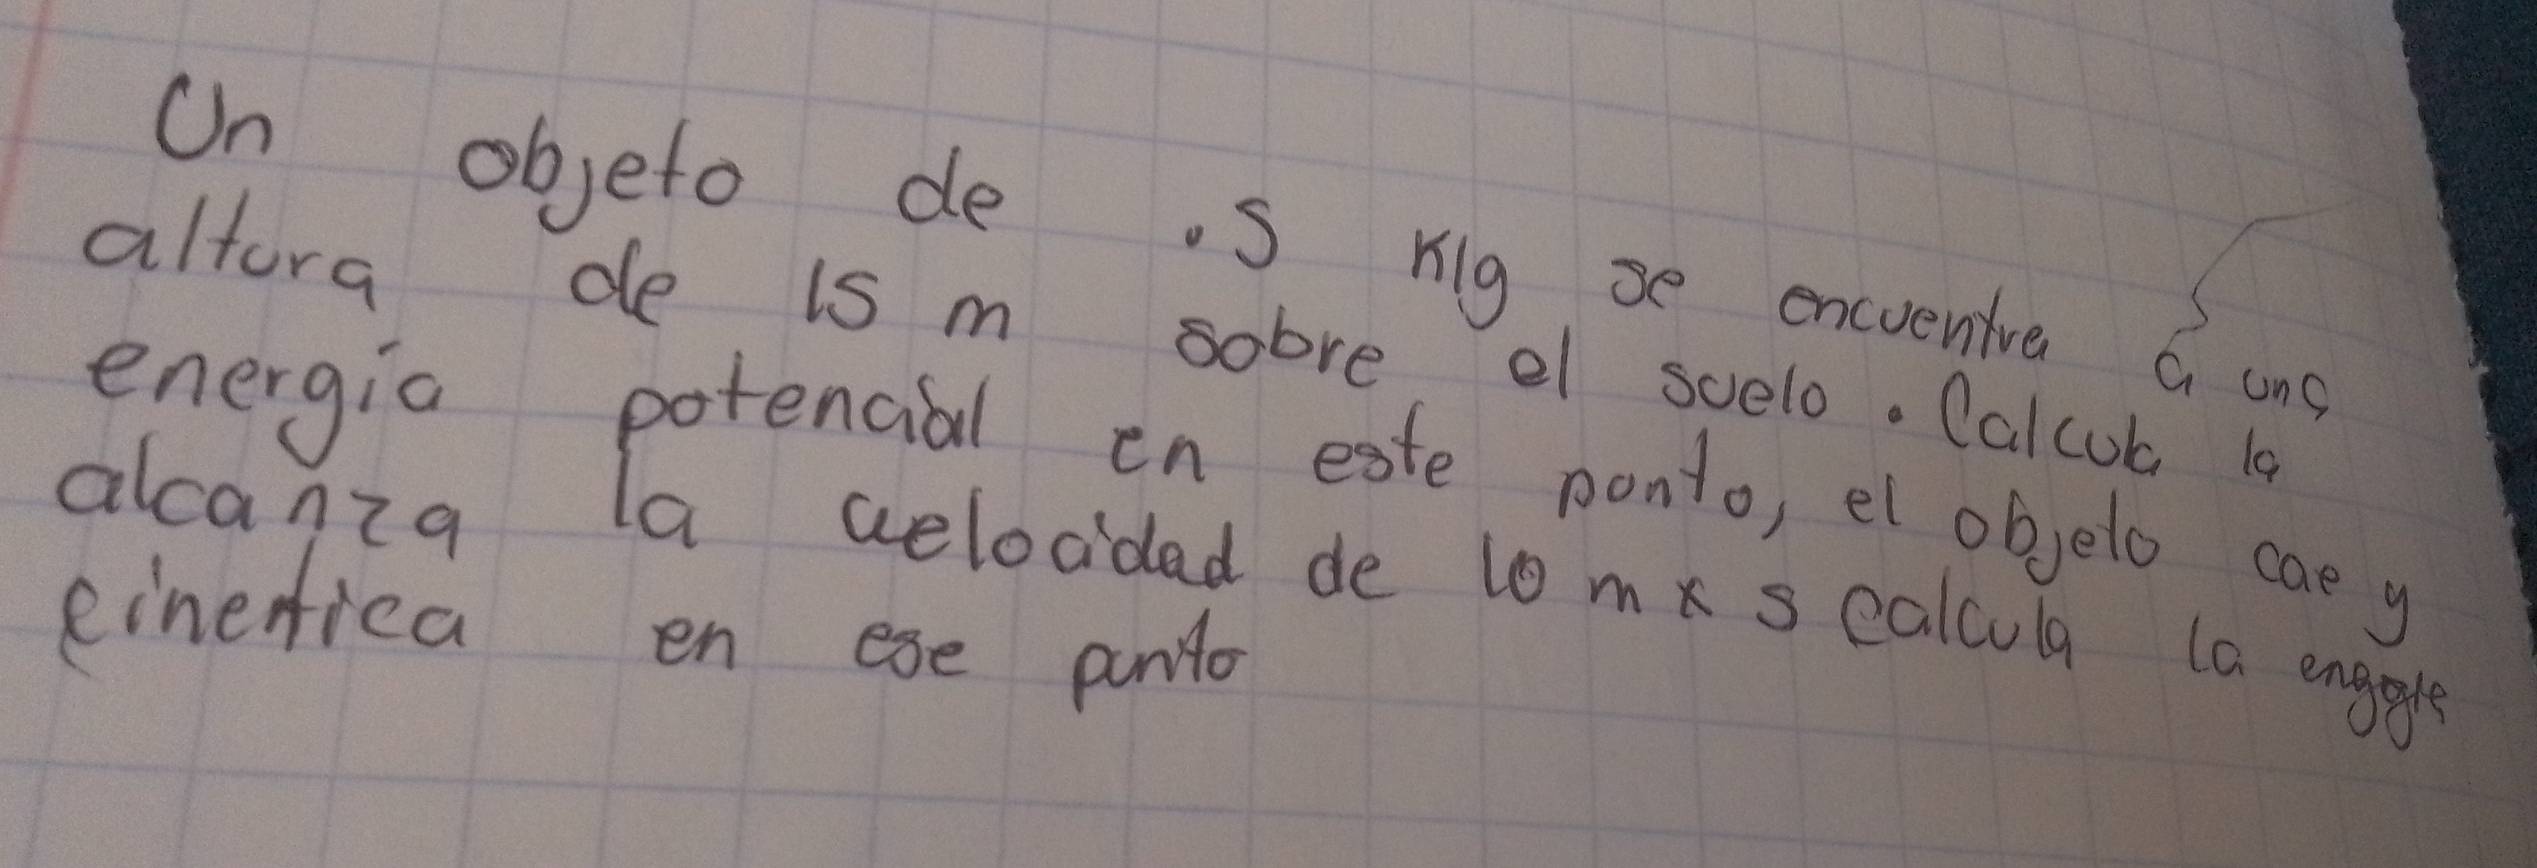 Un objeto de .5 Klg se encuentra a una
altura de 15 m sobre el suelo. Calcula la
energía potencial en este punto, el objeto cae y
alcanza la velocidad de 10 m x s calcula la
cinetica en ese punto